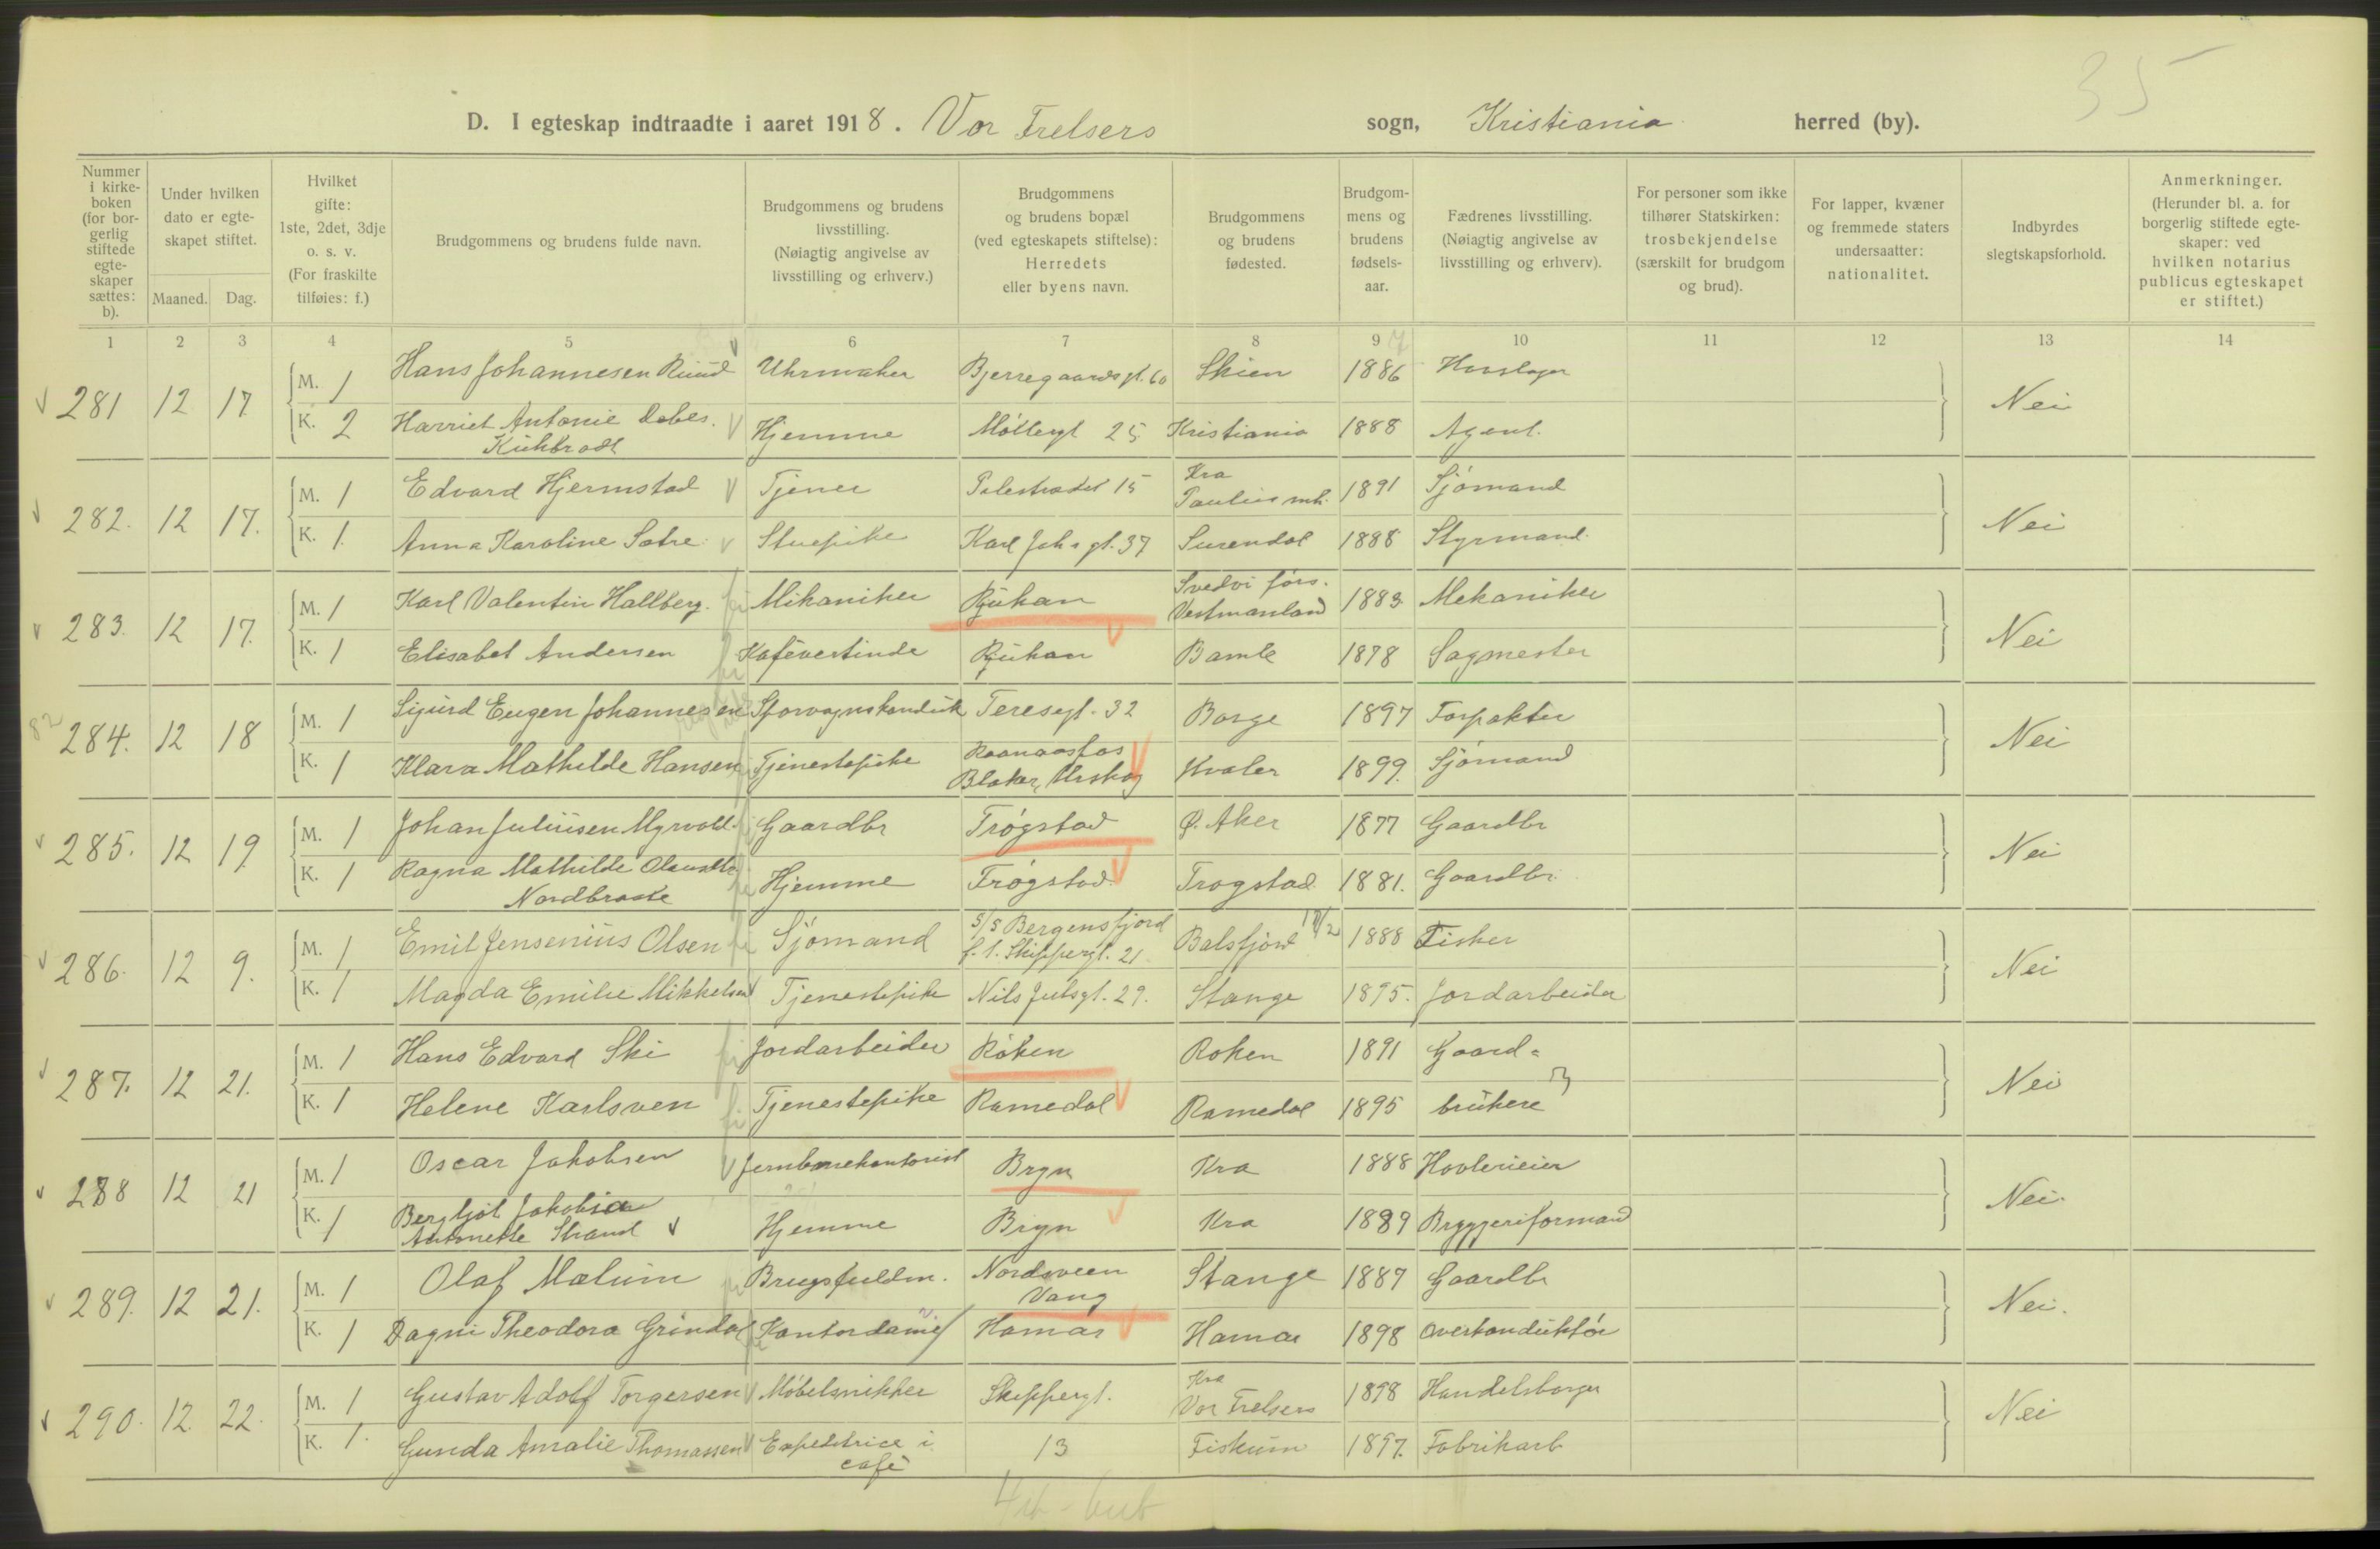 35
D. I egteskap indtraadte i aaret 1918. Vor Frelsers sogn, Kristiania herred (by).
Nummer i kirkeboken (for borgerlig stiftede egteskaper sættes: b).
Under hvilken dato er egteskapet stiftet.
Maaned. Dag.
Hvilket gifte: 1ste, 2det, 3dje o. s. v. (For fraskilte tilføies: f.)
Brudgommens og brudens fulde navn.
Brudgommens og brudens livsstilling. (Nøiagtig angivelse av livsstilling og erhverv.)
Brudgommens og brudens bopæl (ved egteskapets stiftelse): Herredets eller byens navn.
Brudgommens og brudens fødested.
Brudgommens og brudens fødselsaar.
Fædrenes livsstilling. (Nøiagtig angivelse av livsstilling og erhverv).
For personer som ikke tilhører Statskirken: trosbekjendelse (særskilt for brudgom og brud).
For lapper, kvæner og fremmede staters undersaatter: nationalitet.
Indbyrdes slegtskapsforhold.
Anmerkninger. (Herunder bl. a. for borgerlig stiftede egteskaper: ved hvilken notarius publicus egteskapet er stiftet.)
1 2 3 4 5 6 7 8 9 10 11 12 13 14
281 12 17 M. 1 Hans Johannesen Ruud Uhrmaker Bjerregaardsgt. 60 Skien 1886 Nei
K. 2 Harriet Antonie Hjemme Møllergt 25 Kristiania 1888 Agent.
282. 12 17. M. 1 Edvard Hjermstad Tjener Pilestrædet 15 Kra Paulus mh. 1891 Sjömand Nei
K. 1. Anna Karoline Sætre Stuepike Karl Johs gt. 37 Surendal 1888 Styrmand.
283. 12 17. M. 1 Karl Valentin Hallberg. Mikaniker Rjukan Svedvi förs. Vestmanland 1883 Mekaniker Nei
K. 1 Elisabet Andersen Kafévertinde Rjukan Bamle 1878 Sagmester
82 284. 12 18 M. 1 Sigurd Eugen Johannesen Sporvognskonduk Teresegt. 32 Borge 1897 Forpakter Nei
K. 1 Klara Mathilde Hansen Tjenestepike Raanaasfos Blaker, Urskog Hvaler 1899. Sjömand
285. 12 19. M. 1 Johan Juliusen Myrvold Gaardbr Trögstad Ø. Aker 1877 Gaardbr Nei
K. 1 Ragna Mathilde Olausdtr Nordbraate Hjemme Trögstad Trogstad 1881. Gaardbr.
286. 12 9. M. 1 Emil Jensenius Olsen Sjömand S/S Bergensfjord f. t. Skippergt. 21 Balsfjord 1888 Fisker Nei
K. 1 Magda Emilie Mikkelsen Tjenestepike Nils Juelsgt. 29. Stange 1895. Jordarbeider
287. 12 21. M. 1 Hans Edvard Ski Jordarbeider Röken Roken 1891 Gaard= Nei
K. 1 Helene Karlsven Tjenestepike Romedal Romedal 1895 brukere
288 12 21 M. 1 Oscar Jakobsen Jernbanekontorist Bryn Kra 1888 Hovlerieier Nei.
K. 1 Bergljot Jakobia Antonette Strand Hjemme Bryn Kra 1889 Bryggeriformand
289. 12 21. M. 1 Olaf Mælum Brugsfuldm. Nordsveen Vang Stange 1887 Gaardbr Nei.
K. 1 Dagni Theodora Grindal Kontordame Hamar Hamar 1898 Overkonduktör
290. 12. 22. M. 1 Gustav Adolf Torgersen Möbelsnikker Skippergt. Kra Vor Frelsers 1898 Handelsborger Nei
K. 1. Gunda Amalie Thomassen Expeditrice i café 13 Fiskum 1897. Fabrikarb